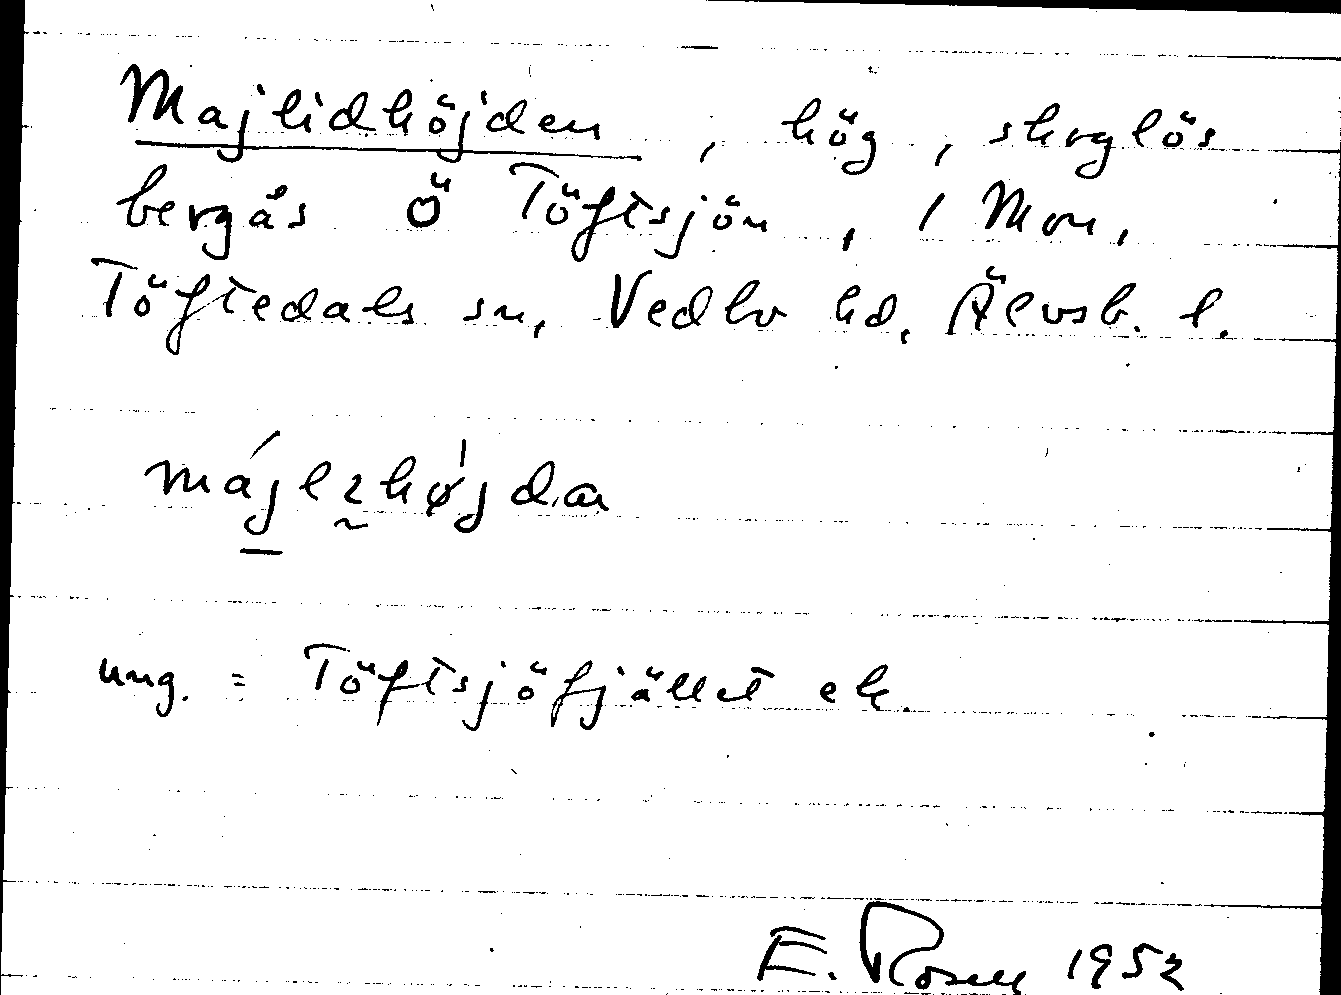 Majlidhöjden, hög, skoglös
bergås Ö Töftsjön, 1 Mon,
Töftedals sn, Vedbo hd, Älvsb. l.
ung. = Töftsjöfjället ek.
E. Rosell 1952